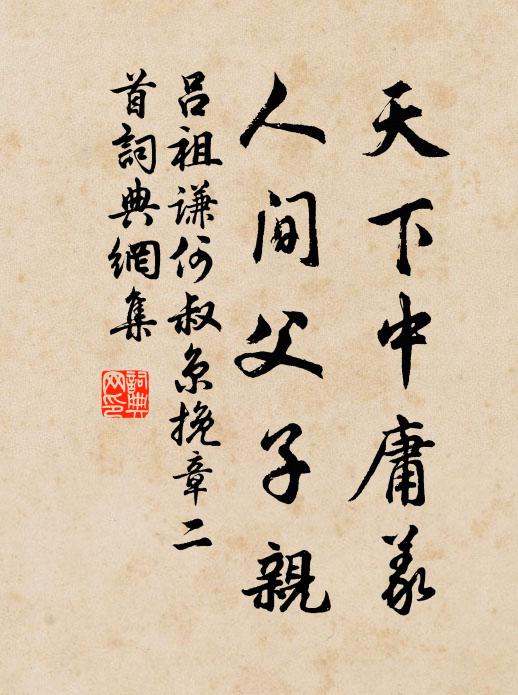 天下中庸義
人間父子親
呂祖謙何叔京挽章二
首詞典網集
詞典
网印